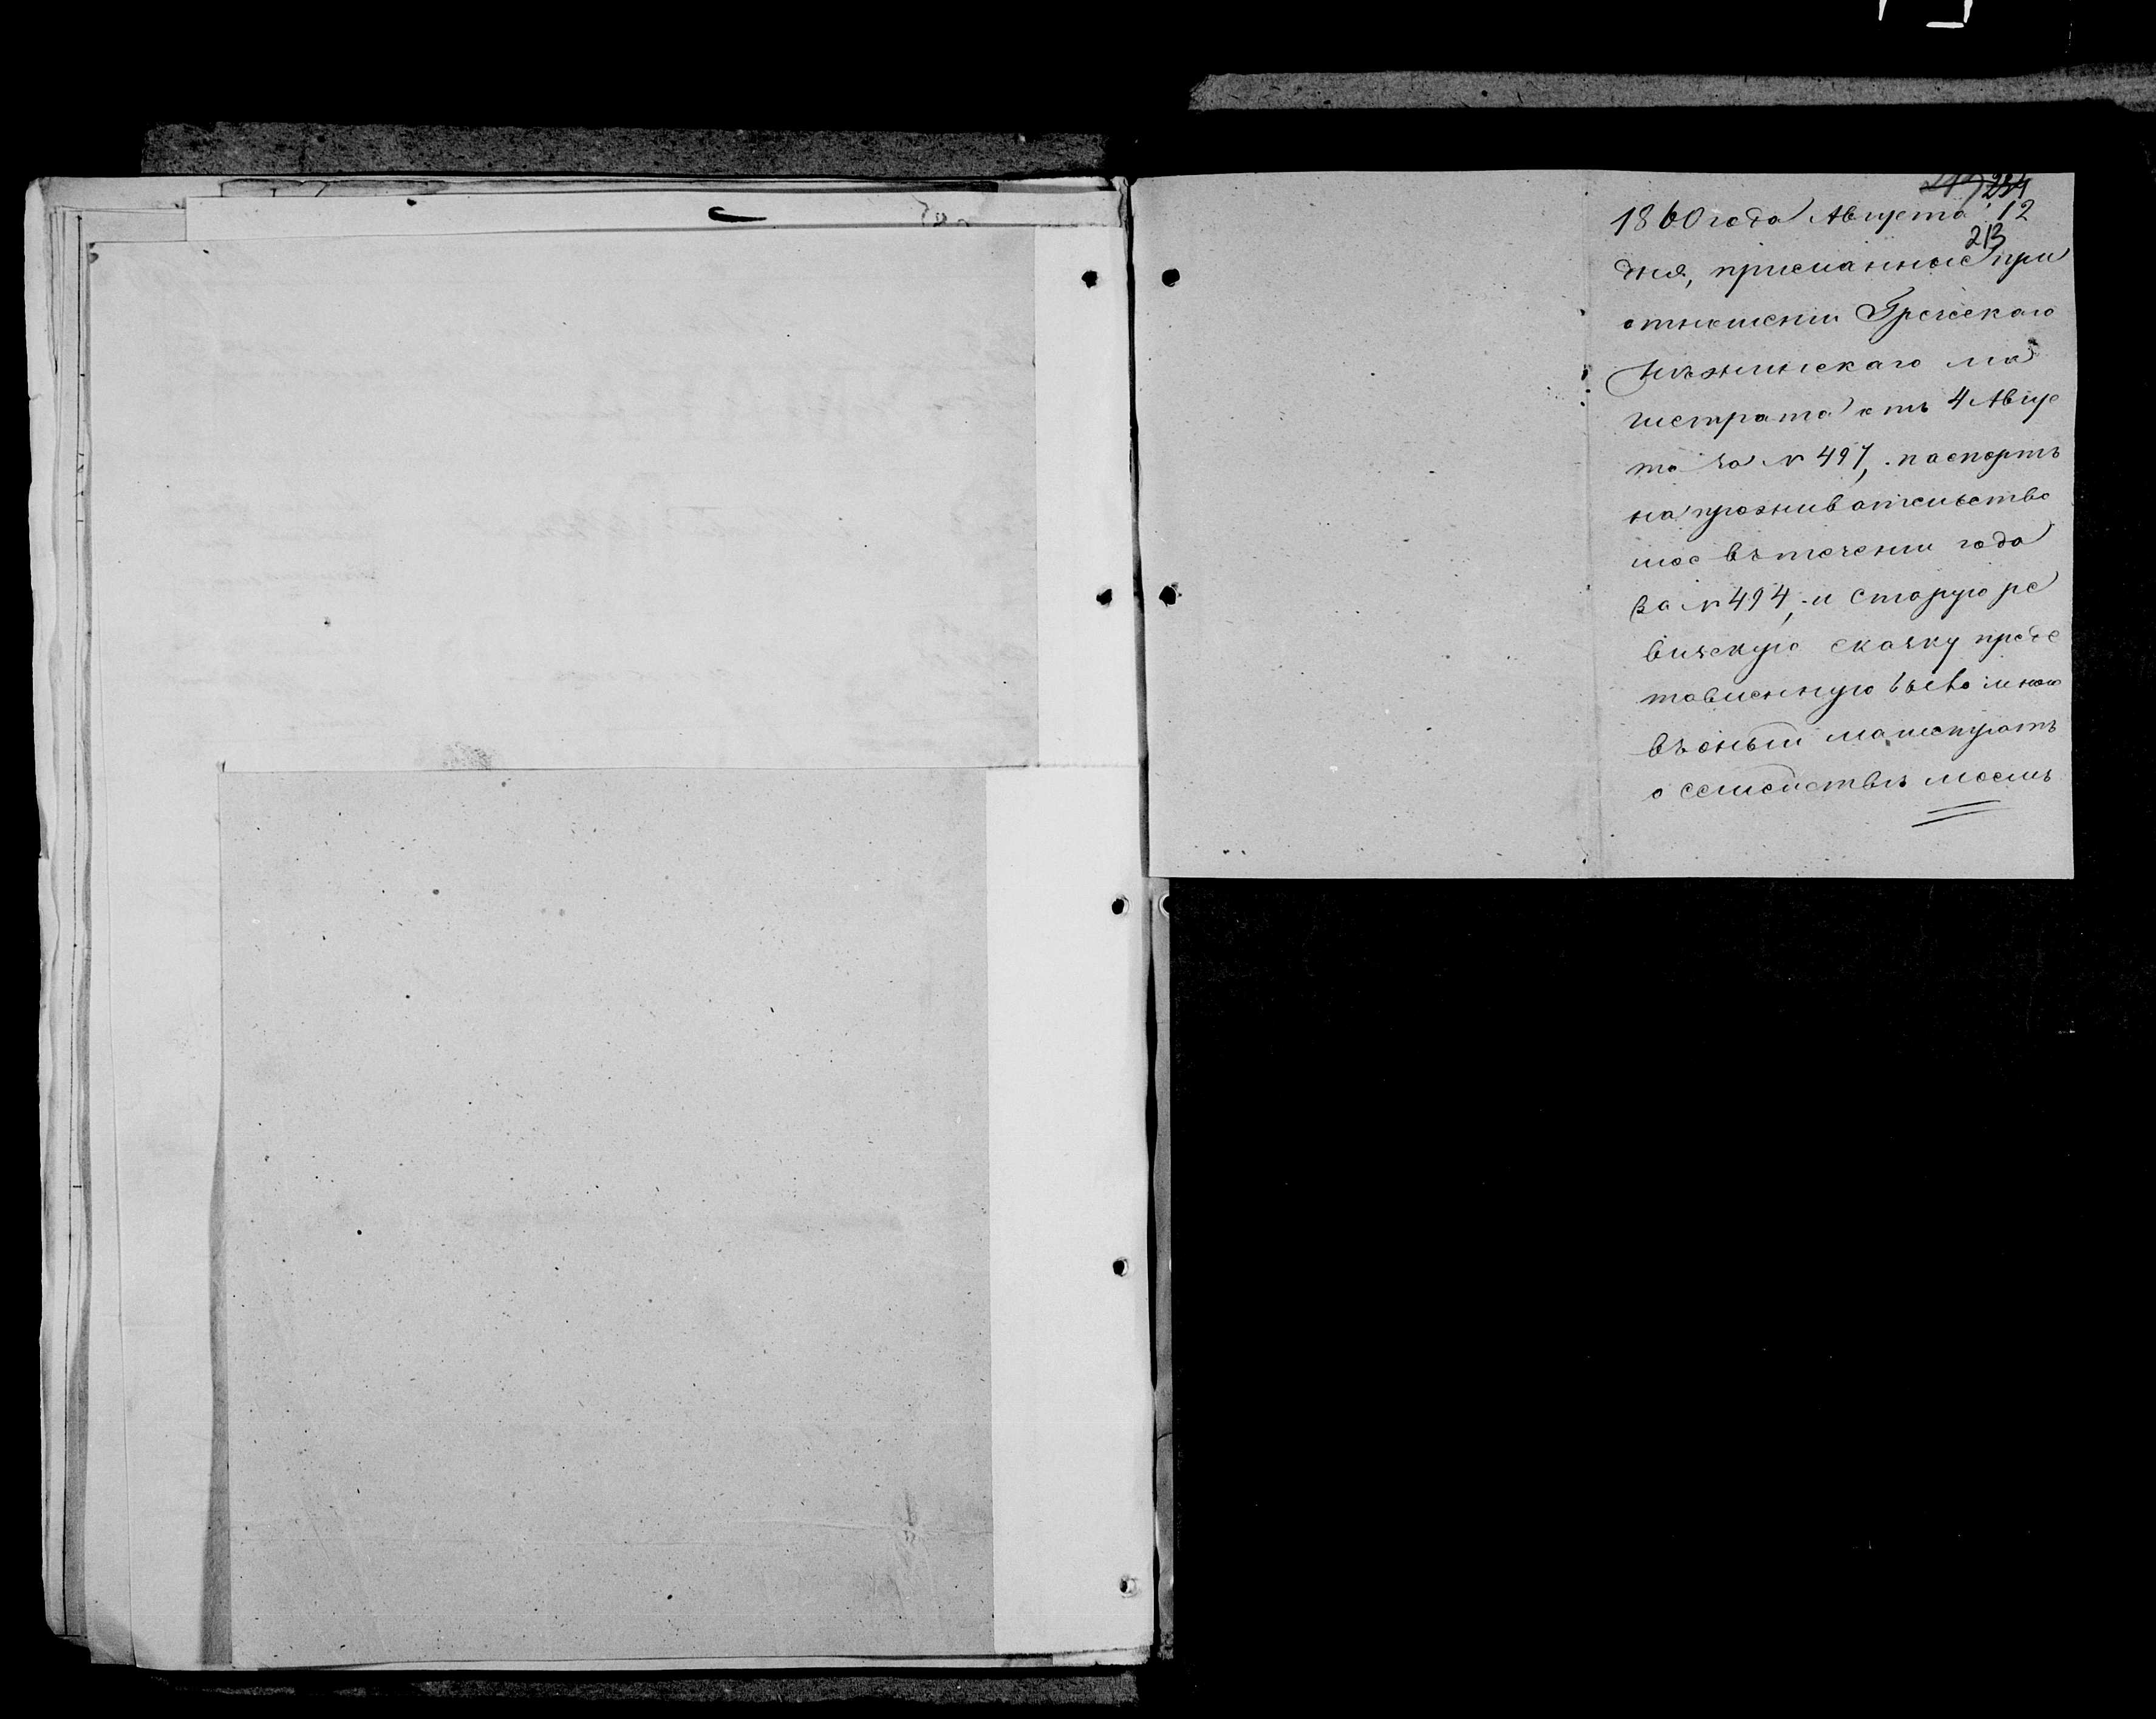 234
1860 года Августа 12
213
дня, присланные при
отношении Греческаго
Нѣжинскаго ма
гистрата отъ 4 Авгус
та за № 497, паспортъ
на проживательство
мое въ течении года
за № 494, и старую ре
визскую сказку предс
тавленную
въ оный магистратъ
о семействѣ моемъ